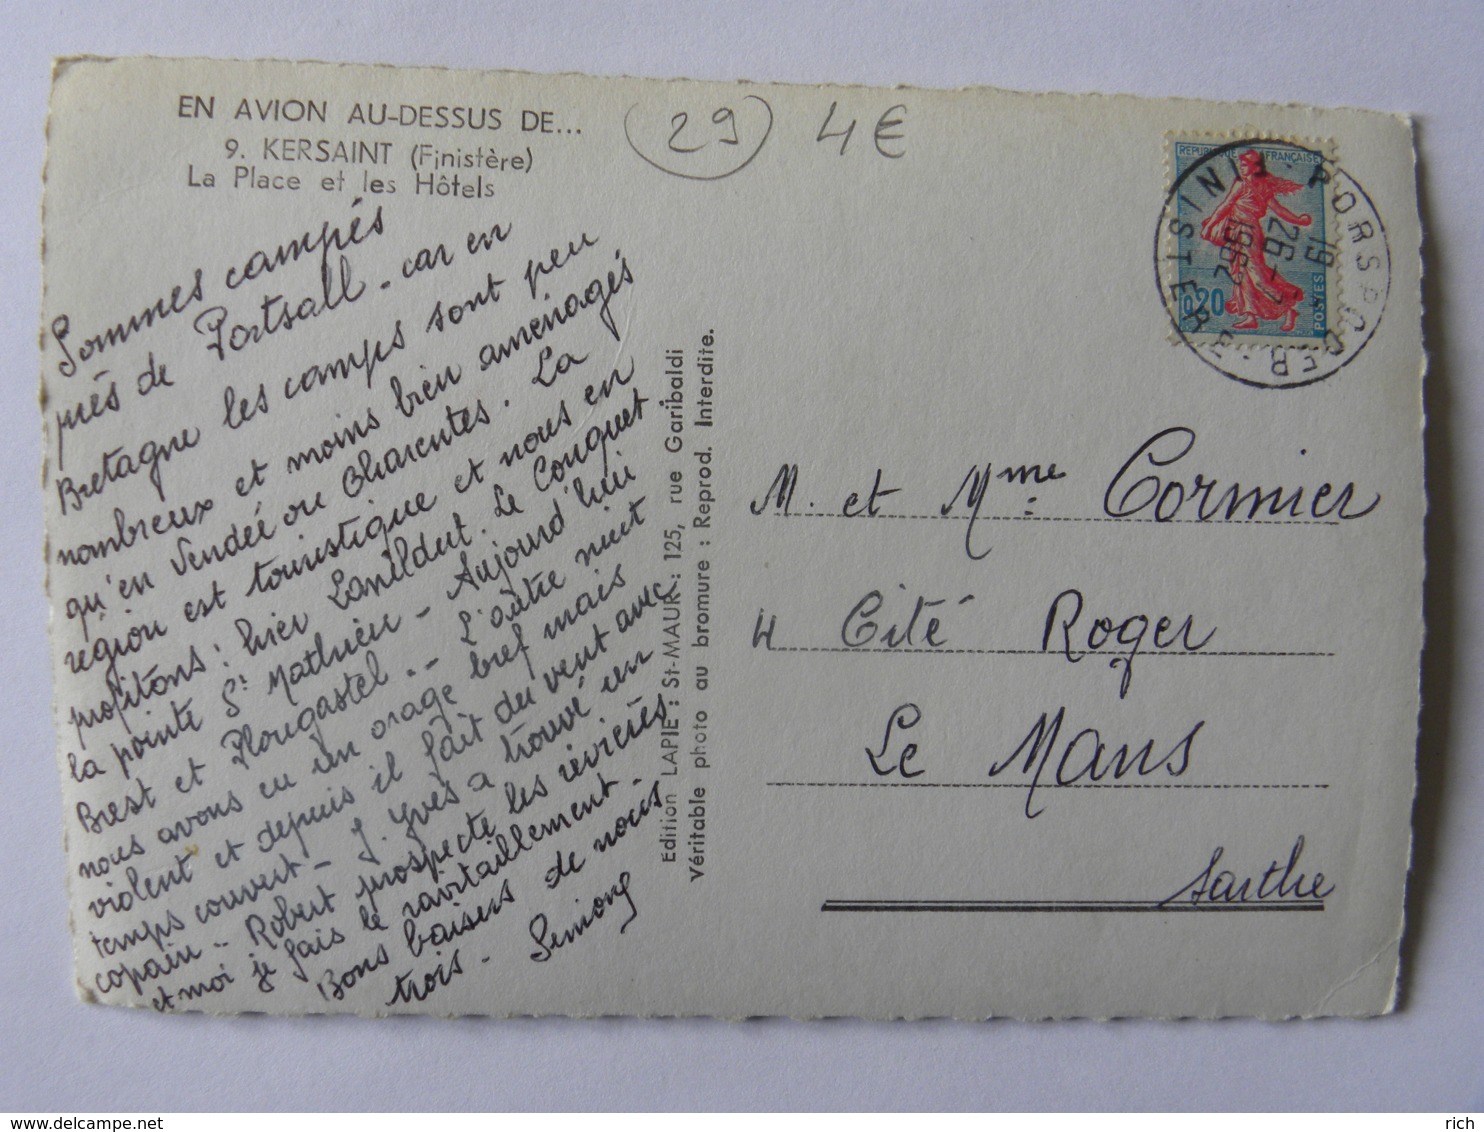 EN AVION AU-DESSUS DE...
9. KERSAINT (Finistère)
La Place et les Hôtels
29 4€
Sommes campés
près de Portsall - car en
Bretagne les camps sont peu
nombreux et moins bien aménagés
qu'en Vendée ou Charentes. La
région est touristique et nous en
profitons : hier Lanildut. Le Conquet.
la pointe St Mathieu - Aujourd'hui
Brest et Plougastel. - L'autre nuit
nous avons eu un orage bref mais
violent et depuis il fait du vent avec
temps couvert - J. Yves a trouvé un
copain - Robert prospecte les rivières
et moi je fais le ravitaillement.
Bons baisers de nous
trois -
Edition LAPIE : St-MAUR : 125, rue Garibaldi
Véritable photo au bromure : Reprod. Interdite.
REPUBLIQUE FRANÇAISE
0,20
POSTES
PORSPODER
FINISTERE
19
26-7
1962
M. et Mme Cormier
4 Cité Roger
Le Mans
Sarthe
rich